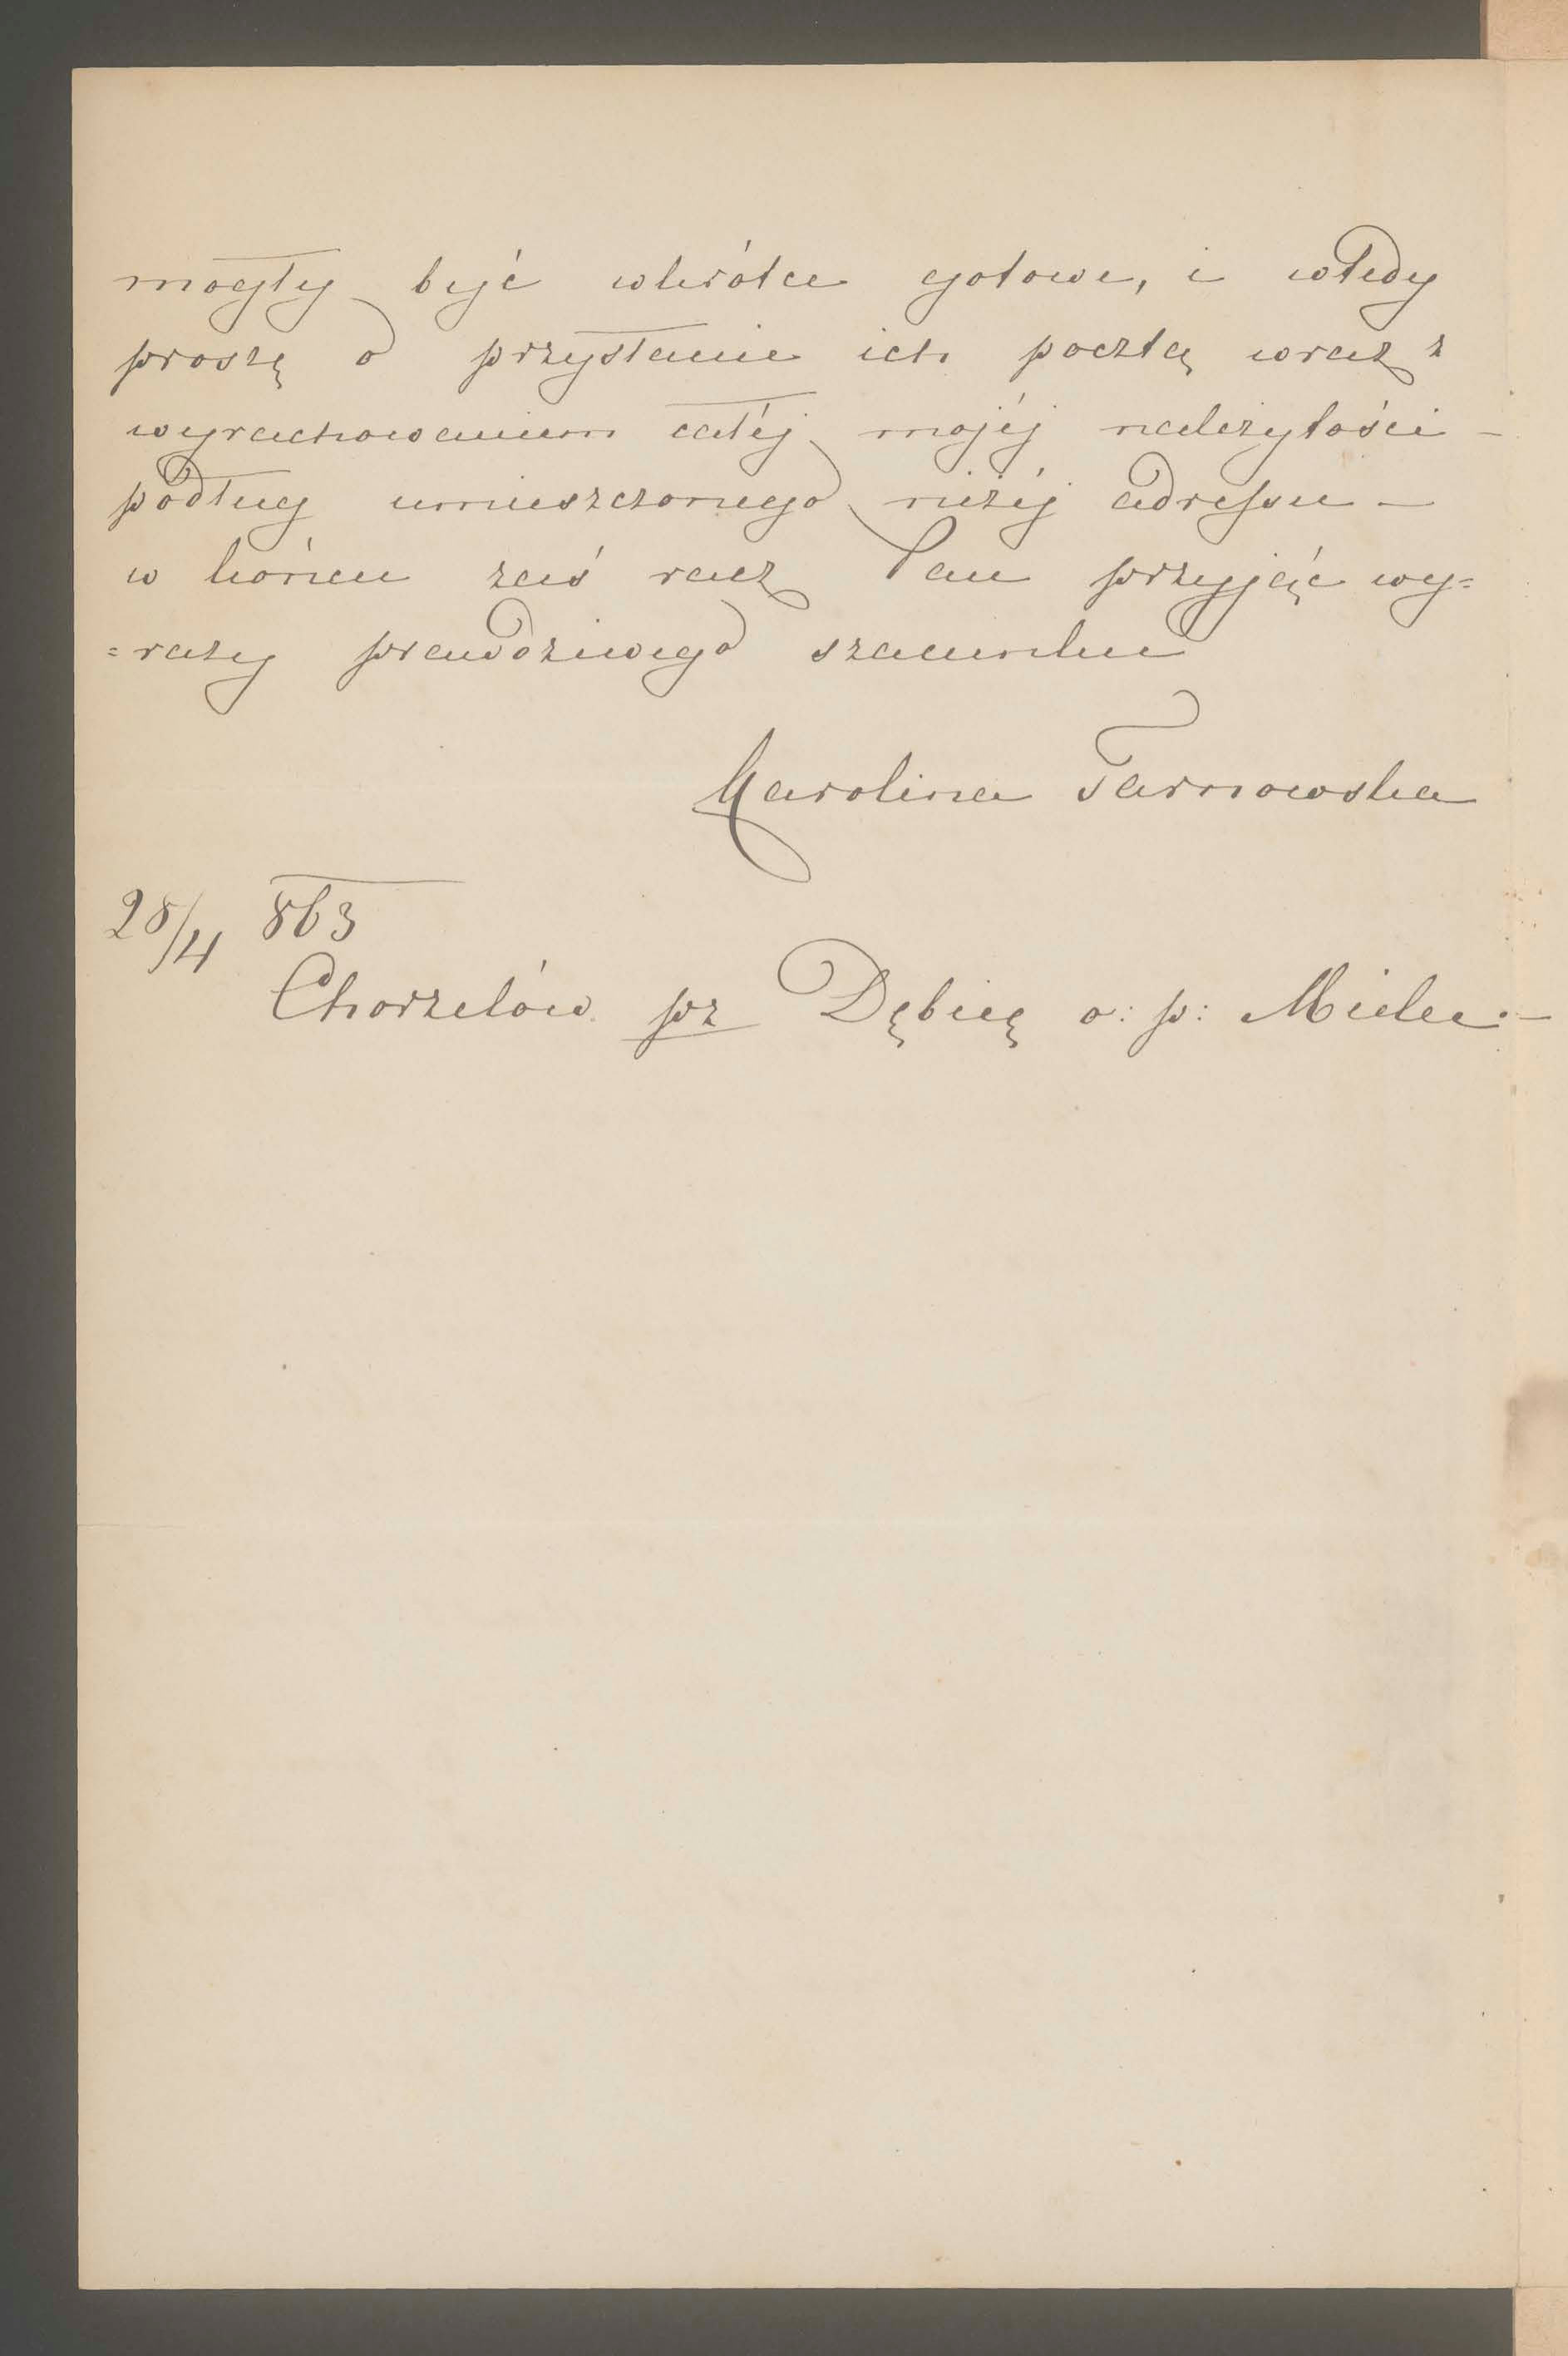 mogły być wkrótce gotowe, i wtedy
proszę o przysłanie ich pocztą wraz z
wyrachowaniem całéj mojéj należytości –
podług umieszczonego niżéj adressu –
w końcu zaś racz Pan przyjąć wy=
=razy prawdziwego szacunku
Karolina Tarnowska
28/4 863
Chorzelów pz Dębicę o: p: Mielec. –